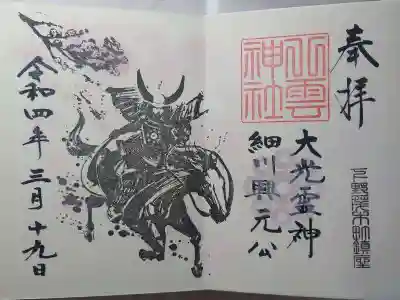 奉拝
出雲
神社
大光霊神
細川興元公
令和四年三月十九日